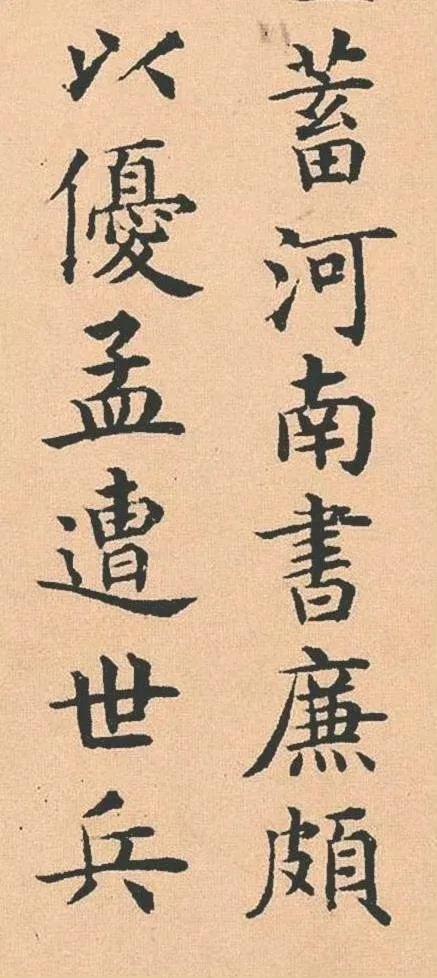 蓄河南書廉頗
以優孟遭世兵